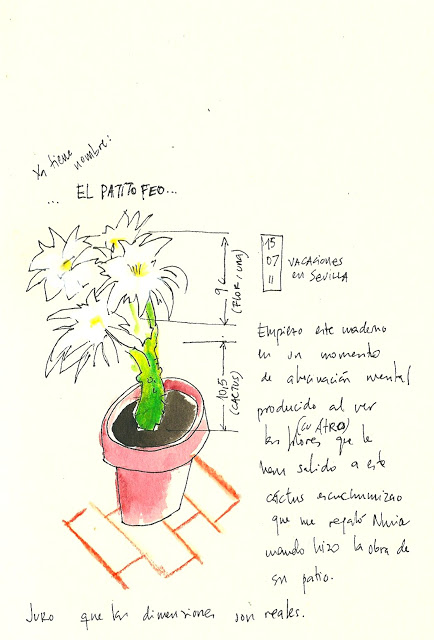 Ya tiene nombre:
... EL PATITO FEO...
15
07
11
VACACIONES
en SEVILLA
9 c.
(FLOR/UNA)
10,5
(CACTUS)
Empiezo este cuaderno
en un momento
de alucinación mental
producido al ver
(CUATRO)
las flores que le
han salido a este
cáctus escuchimizao
que me regaló Nuria
cuando hizo la obra de
su patio.
Juro que las dimensiones son reales.